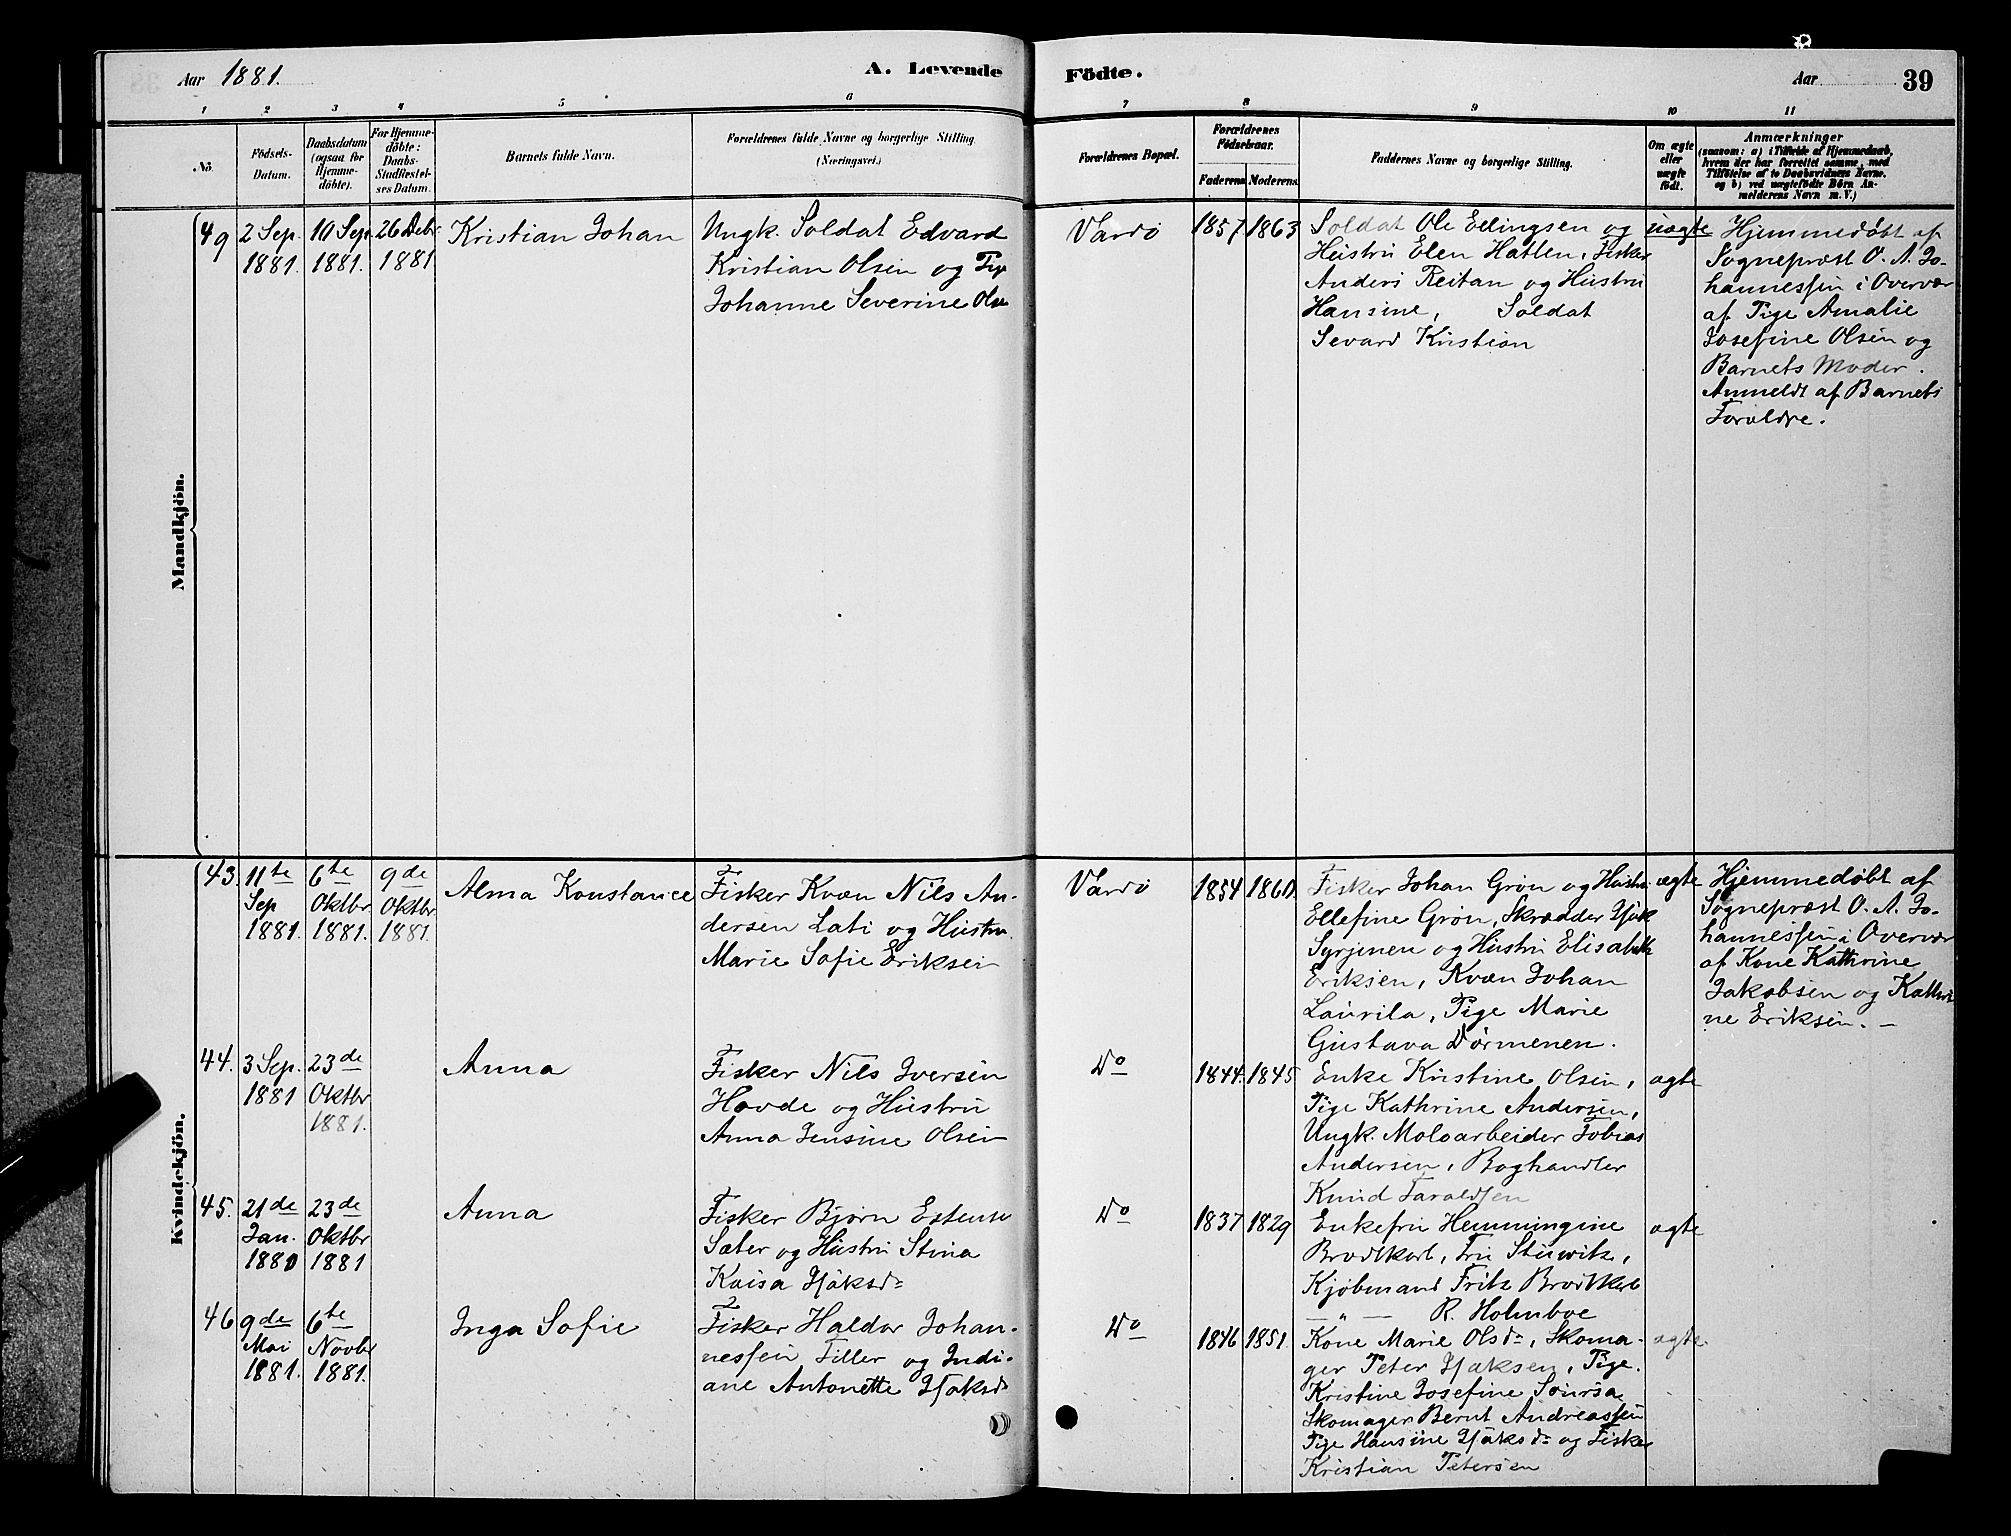 Aar 1881.
A. Levende
Födte.
Aar
39
1 2 3 4 5 6 7 8 9 10 11
No
Födsels-
Datum.
Daabsdatum
(ogsaa for
Hjemme-
döbte).
For Hjemme-
döbte:
Daabs-
Stadfæstel-
ses Datum.
Barnets fulde Navn.
Forældrenes fulde Navne og borgerlige Stilling
(Næringsvei.)
Forældrenes Bopæl.
Forældrenes
Födselsaar.
Faderens Moderens
Faddernes Navne og borgerlige Stilling.
Om ægte
eller
uægte
födt.
Anmærkninger
(saasom: a) i Tilfælde af Hjemmedaab,
hvem der har forrettet samme, med
Tilföielse af to Daabsvidners Navne,
og b) ved uægtefödte Börn An-
melderens Navn m. V.)
Mandkjön.
49
2 Sep.
1881.
10 Sep.
1881.
26 Debr
1881
Kristian Johan
Ungk. Soldat Edvard
Kristian Olsen og Pige
Johanne Severine Olsen
Vardö
1857 1863
Soldat Ole Ellingsen og
Hustru Elen Hatlen, Fisker
Anders Reitan og Hustru
Hansine, Soldat
Sevard Kristian
uægte
Hjemmedøbt af
Sognepræst O. A. Jo-
hannessen i Overvær
af Pige Amalie
Josefine Olsen og
Barnets Moder.
Anmeldt af Barnets
Forældre.
Kvindekjön.
43.
11te
Sep
1881.
6te
Oktbr
1881.
9de
Oktbr
1881.
Alma Konstance
Fisker Kvæn Nils An-
dersen Lati og Hustru
Marie Sofie Eriksen
Vardö
1854 1860.
Fisker Johan Grøn og Hustru
Ellefine Grøn, Skrædder Isak
Syrjenen og Hustru Elisabeth
Eriksen, Kvæn Johan
Laurila, Pige Marie
Gustava Dörmenen.
ægte
Hjemmedøbt af
Sognepræst O. A. Jo-
hannessen i Overvær
af Kone Kathrine
Jakobsen og Kathri
ne Eriksen. —
44.
3 Sep.
1881
23de
Oktbr
1881.
Anna
Fisker Nils Iversen
Hovde og Hustru
Anna Jensine Olsen
Do
1844. 1845
Enke Kristine Olsen,
Pige Kathrine Andersen,
Ungk. Moloarbeider Tobias
Andersen, Boghandler
Knud Taraldsen
ægte
45.
21de
Jan.
1880
23de
Oktbr
1881
Anna
Fisker Bjørn Estensen
Sæter og Hustru Stina
Kaisa Isaksdr
Do
1837 1829
Enkefru Hemmingine
Brodtkorb, Fru Stuwitz,
Kjøbmand Fritz Brodtkorb
— " — R. Holmboe
ægte
46
9de
Mai
1881.
6te
Novbr
1881.
Inga Sofie
Fisker Haldor Johan-
nessen Tiller og Indi-
ane Antonette Isaksdr
Do
1846 1851.
Kone Marie Olsdr, Skoma-
ger Peter Isaksen, Pige
Kristine Josefine Soursa
Skomager Bernt Andreassen
Pige Hansine Isaksdr og Fisker
Kristian Petersen
ægte.